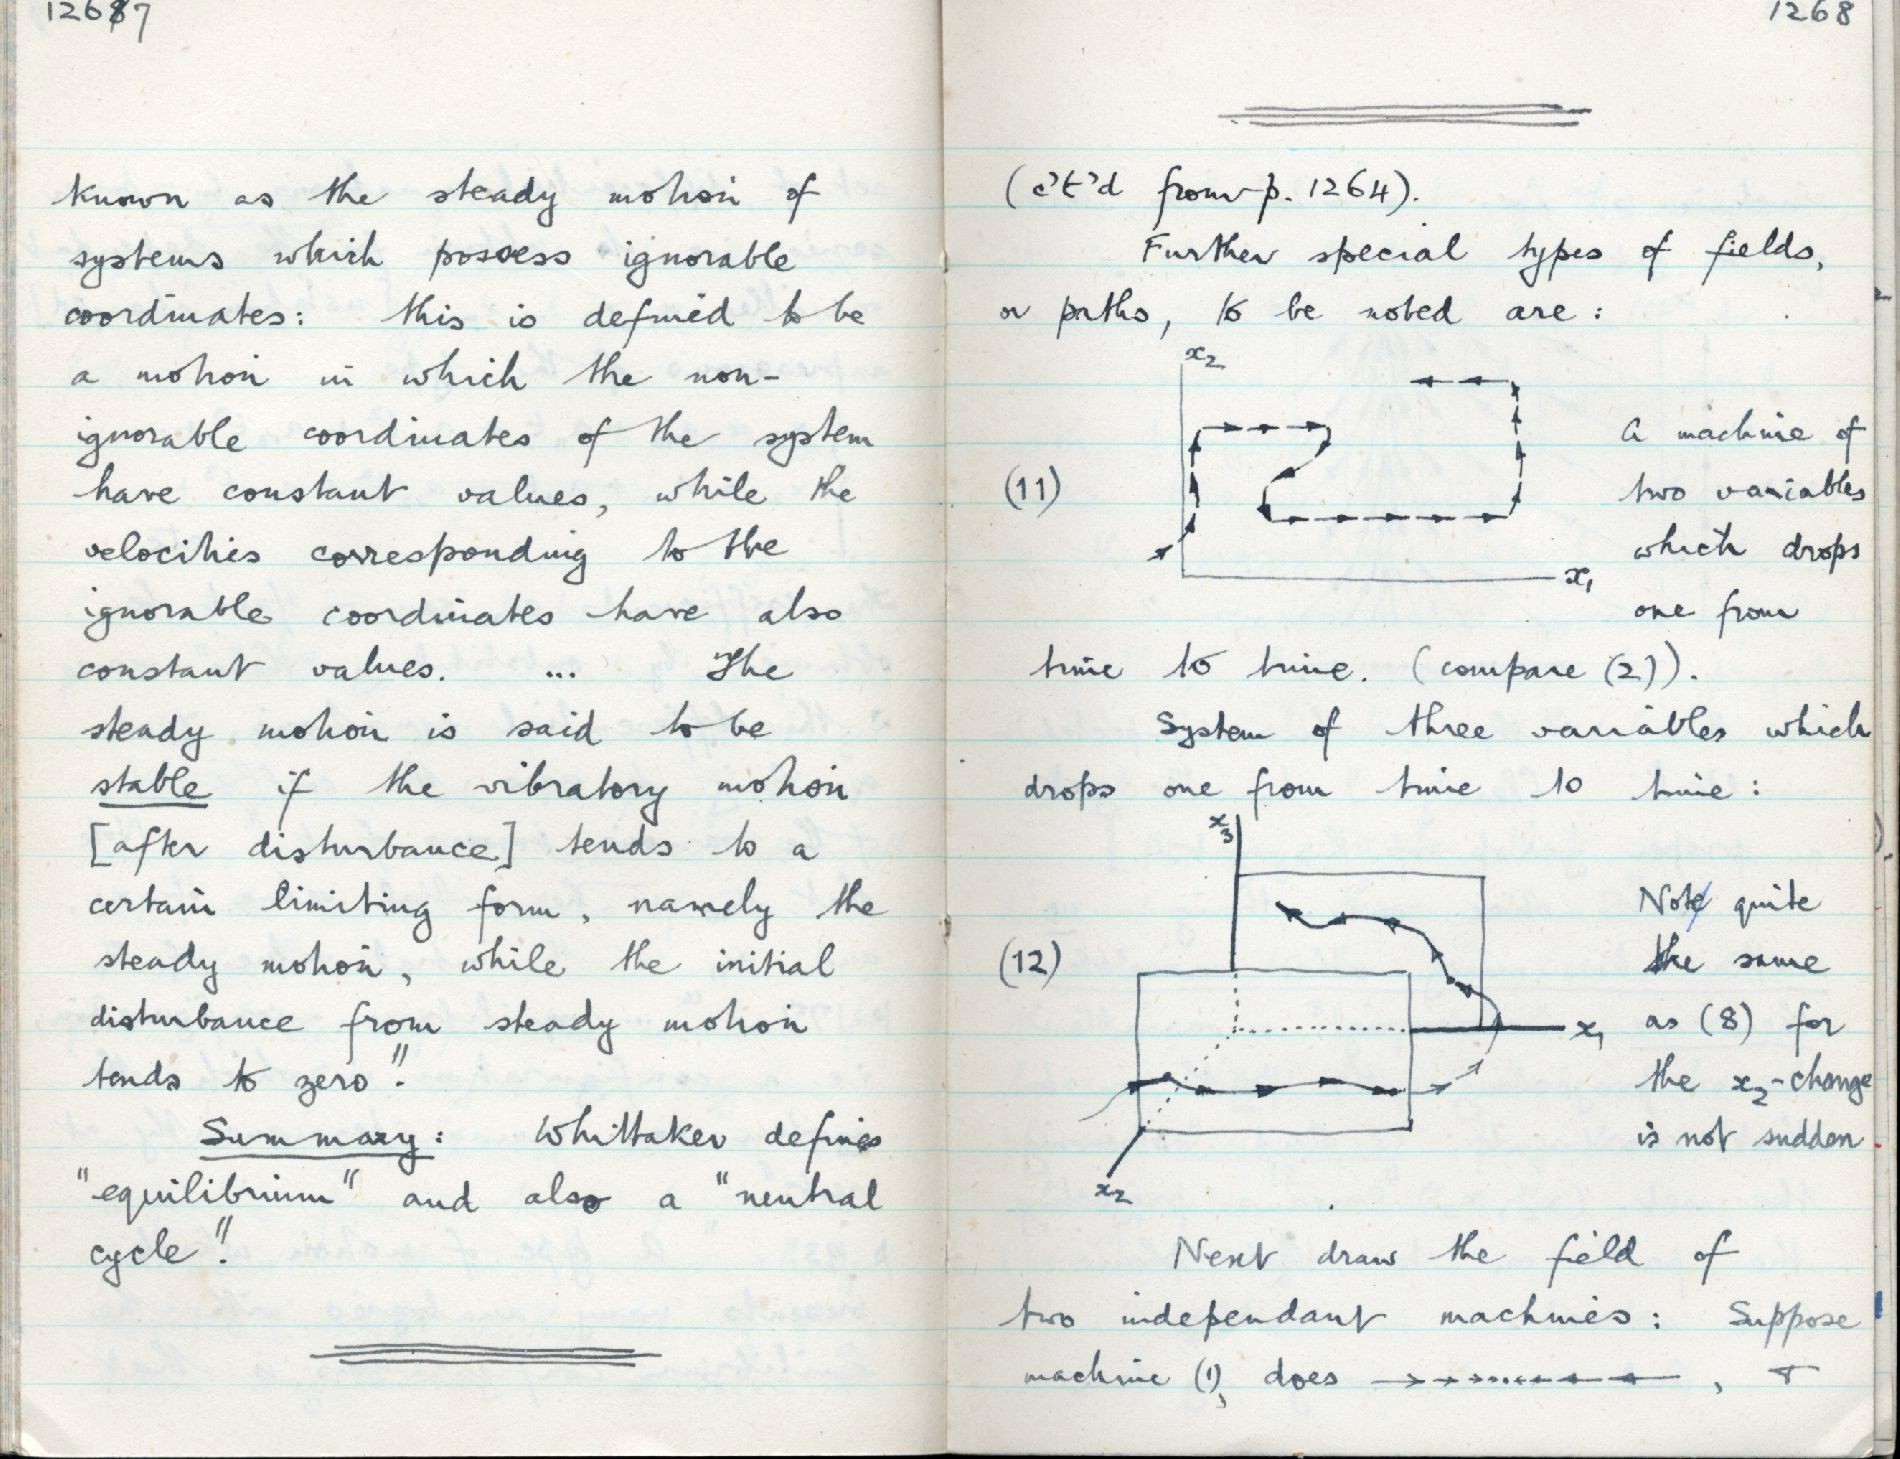 1267
known as the steady motion of
systems which possess ignorable
coordinates: this is defined to be
a motion in which the non-
ignorable coordinates of the system
have constant values, while the
velocities corresponding to the
ignorable coordinates have also
constant values. ... The
steady motion is said to be
stable if the vibratory motion
[after disturbance] tends to a
certain limiting form, namely the
steady motion, while the initial
disturbance from steady motion
tends to zero".
Summary: Whittaker defines
"equilibrium" and also a "neutral
cycle".
1268
(c't'd from p. 1264).
Further special types of fields,
or paths, to be noted are:
x2
(11)
x1
A machine of
two variables
which drops
one from
time to time. (compare (2)).
System of three variables which
drops one from time to time:
x3
(12)
x1
x2
Not quite
the same
as (8) for
the x2-change
is not sudden
Next draw the field of
two independant machines: Suppose
machine (1), does ,